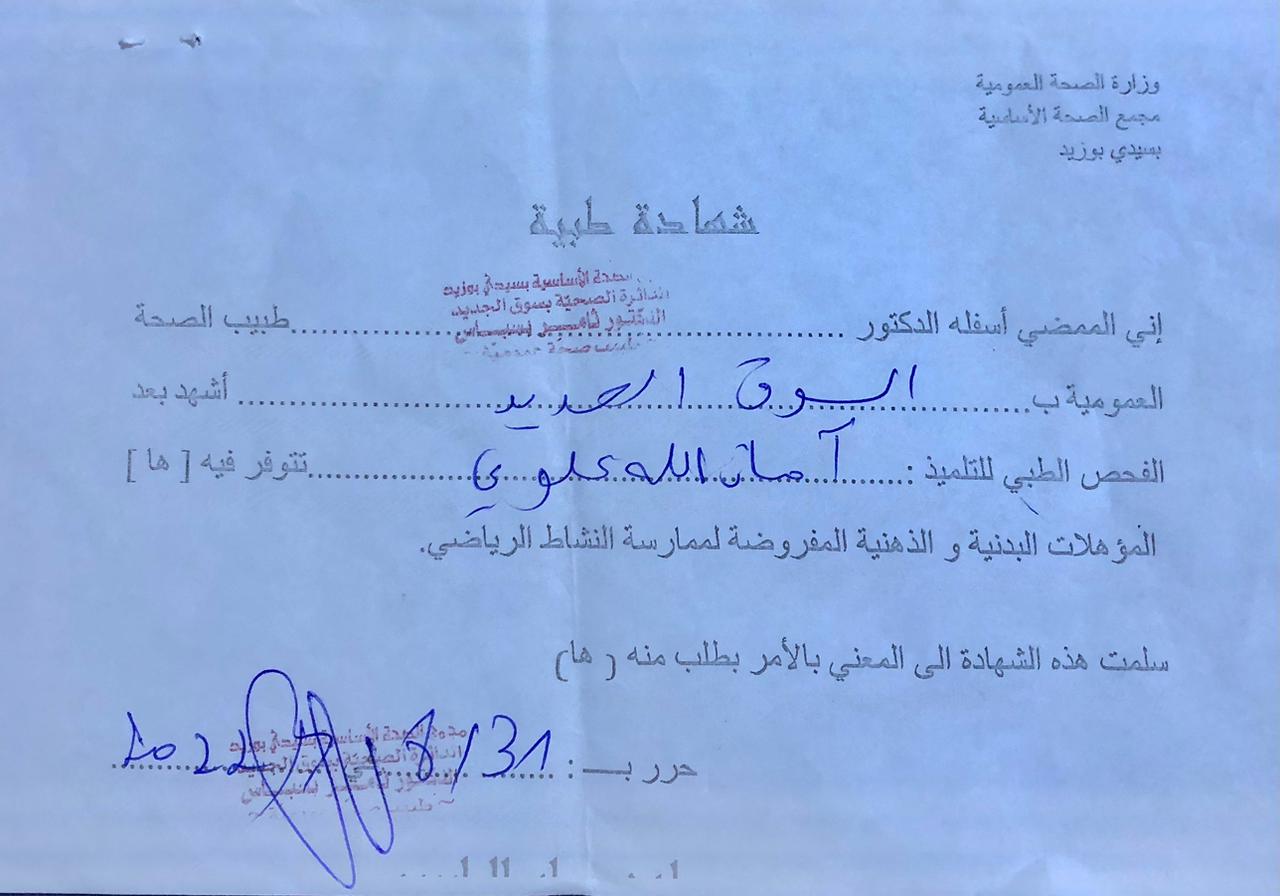 وزارة الصحة العمومية
مجمع الصحة الأساسية
بسيدي بوزيد
شهادة طبية
الصحة الأساسية بسيدي بوزيد
الدائرة الصحية بسوق الجديد
الدكتور
إني الممضي أسفله الدكتور ........................ طبيب الصحة
العمومية ب........ السوق الجديد ........ أشهد بعد
الفحص الطبي للتلميذ : ...... آمان الله علوي ...... تتوفر فيه [ ها ]
المؤهلات البدنية و الذهنية المفروضة لممارسة النشاط الرياضي.
سلمت هذه الشهادة الى المعني بالأمر بطلب منه ( ها)
حرر بـــ : 31/8/2022
مجمع الصحة الأساسية بسيدي بوزيد
الدائرة الصحية بسوق الجديد
الدكتور